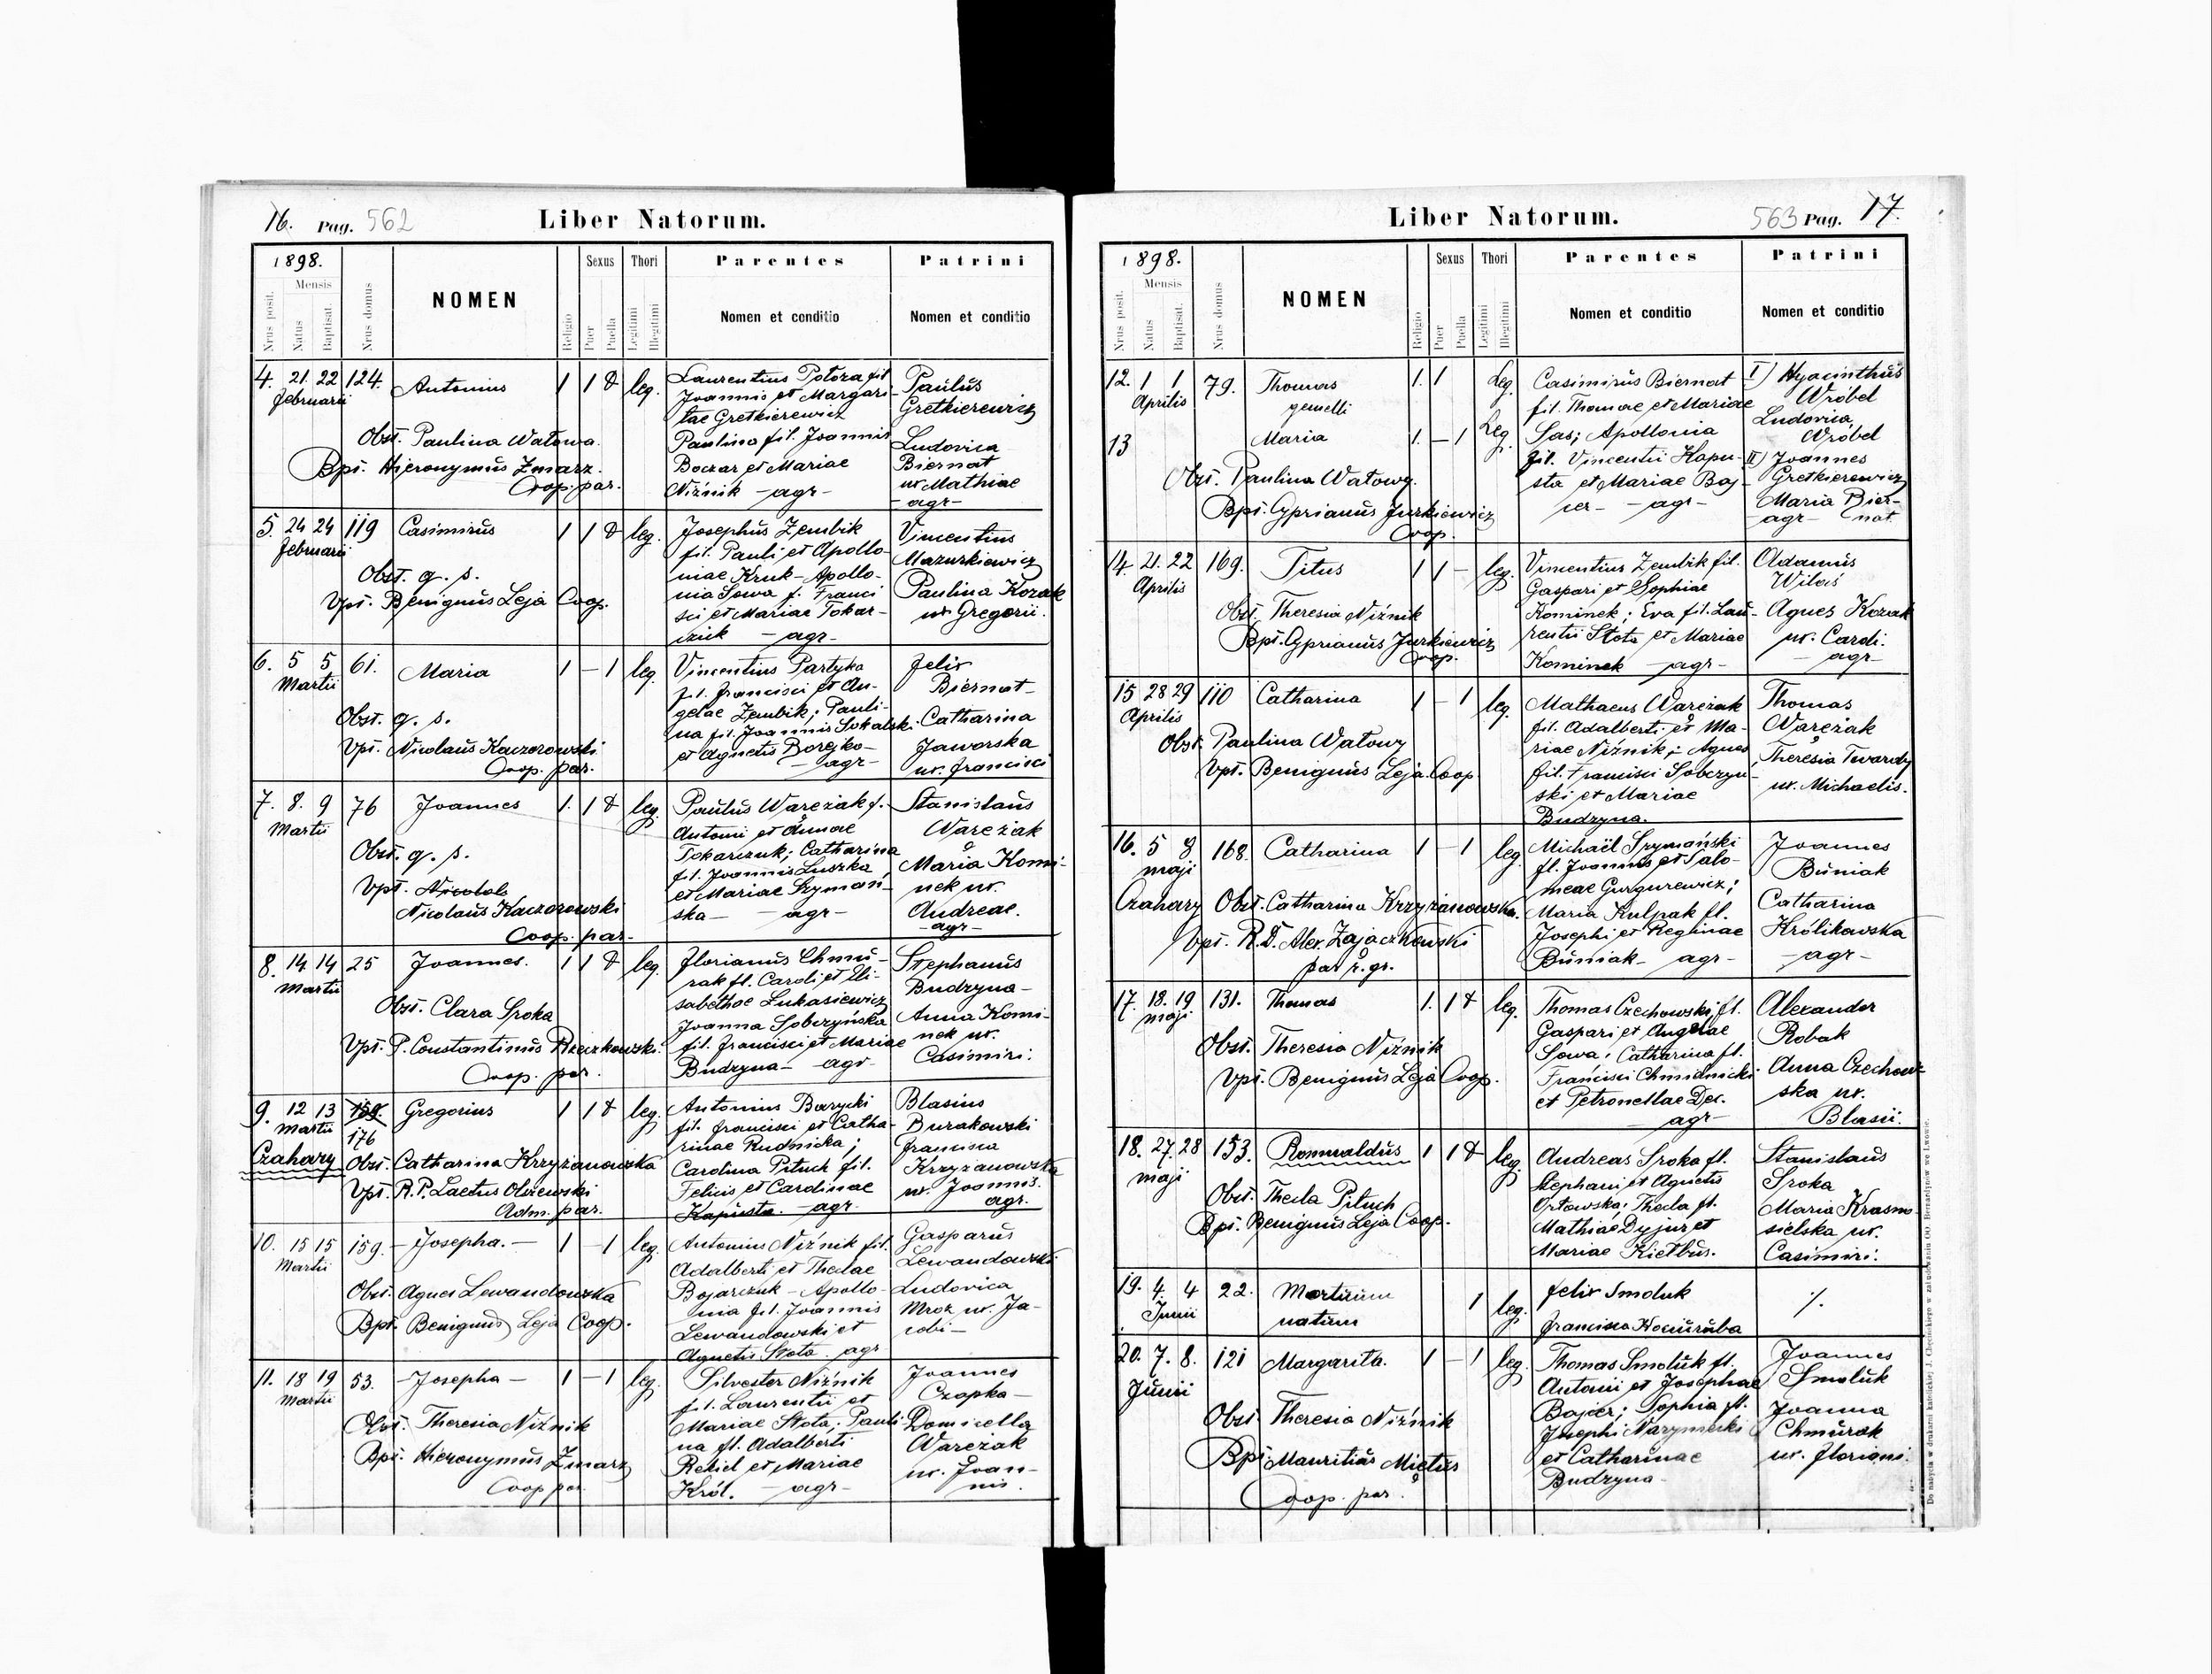 16. Pag. 562
Liber Natorum.
1898.
Mensis
Nrus posit.
Natus
Baptisat.
Nrus domus
NOMEN
Religio
Sexus
Puer
Puella
Thori
Legitimi
Illegitimi
Parentes
Nomen et conditio
Patrini
Nomen et conditio
4. 21. 22 124. Antonius 1 1 leg.
Februarii
Obst. Paulina Watowa.
Bpt. Hieronymus Zmarz.
Coop. par.
Laurentius Potoza fil
Joannis et Margari-
tae Gretkierewicz
Paulina fil. Joannis
Boczar et Mariae
Niźnik - agr-
Paulus
Gretkierewicz
Ludovica
Biernat
ux Mathiae
- agr-
5. 24 24 119 Casimirus 1 1 leg.
Februarii
Obst. q. s.
Vpt. Benignus Leja Coop.
Josephus Zembik
fil. Pauli et Apollo-
niae Kruk - Apollo-
nia Sowa f. Franci
sci et Mariae Tokar-
czuk - agr-
Vincentius
Mazurkiewicz
Paulina Kozak
ux Gregorii.
6. 5 5 61. Maria 1 - 1 leg.
Martii
Obst. q. s.
Vpt. Nicolaus Kaczorowski
Coop. par.
Vincentius Partyka
fil. Francisci et An-
gelae Zembik; Pauli-
na fil. Joannis Sokalski
et Agnetis Borejko-
- agr-
Felix
Biernat-
Catharina
Jaworska
ux. Francisci
7. 8. 9 76 Joannes 1. 1 leg.
Martii
Obst. q. s.
Vpt. Nicolals
Nicolaus Kaczorowski
Coop. par-
Paulus Wareżak f.
Antoni et Annae
Tokarczuk; Catharina
f. f. Joannis Luszka
et Mariae Szyman-
ska - - agr-
Stanislaus
Wareżak
Maria Komi-
nek ux.
Andreae.
-agr-
8. 14 14 25 Joannes. 1 1 leg.
Martii
Obst. Clara Sroka
Vpt. P. Constantinus Rzeczkowski.
Coop. par.
Florianus Chmu-
rak fl. Caroli et Eli-
sabethae Lukasiewicz
Joanna Sobczyńska
fil. Francisci et Mariae
Budzyna- agr-
Stephanus
Budzyna-
Anna Komi-
nek ux.
Casimiri.
9. 12 13 159. Gregorius 1 1 leg.
Martii 176
Czahary Obst. Catharina Krzyżanowska
Vpt. R. P. Laetus Olszewski
Adm. par.
Antonius Barycki
fil. Francisci et Catha-
rinae Rudnicka;
Carolina Pituch fil.
Felicis et Carolinae
Kapusta. - agr-
Blasius
Burakowski
Francisca
Krzyżanowska
ux. Joannis.
agr.
10. 15 15 159. - Josepha. - 1 - 1 leg
Martii
Obst. Agnes Lewandowska
Bpt. Benignus Leja Coop.
Antonius Niźnik fil.
Adalberti et Theclae
Bojarczuk - Apollo-
nia fil. Joannis
Lewandowski et
Agnetis Stota. agr
Gasparus
Lewandowski
Ludovica
Mroz ux. Ja-
cobi-
11. 18 19 53. - Josepha - 1 - 1 leg.
Martii
Obst. Theresia Niźnik
Bpt. Hieronymus Zmarz
Coop par.
Silvester Niźnik
fil. Laurentii et
Mariae Stota; Pauli-
na fl. Adalberti
Rekiel et Mariae
Król. - agr-
Joannes
Czapka-
Domicella
Wareżak
ux. Joan-
nis.
Liber Natorum.
563 Pag. 17.
1898.
Mensis
Nrus posit.
Natus
Baptisat.
Nrus domus
NOMEN
Religio
Sexus
Puer
Puella
Thori
Legitimi
Illegitimi
Parentes
Nomen et conditio
Patrini
Nomen et conditio
12. 1 1 79. Thomas 1. 1 Leg.
Aprilis gemelli
13 Maria 1. - 1 Leg.
Obst. Paulina Watowy.
Bpt. Cyprianus Jurkiewicz
Coop.
Casimirus Biernat
fil. Thomae et Mariae
Sas; Apollonia
fil. Vincentii Kapu-
sta et Mariae Boj-
cer- - agr-
I) Hyacinthus
Wróbel
Ludovica
Wróbel
II) Joannes
Gretkierewicz
Maria Bier-
-agr- nat.
14. 21. 22 169. Titus 1 1 - leg.
Aprilis
Obst. Theresia Niźnik
Bpt. Cyprianus Jurkiewicz
Coop.
Vincentius Zembik fil.
Gaspari et Sophiae
Kominek; Eva fil. Lau-
rentii Stota et Mariae
Kominek - agr-
Adamus
Wilaś
Agnes Kozak
ux. Caroli.
- agr-
15 28 29 110 Catharina 1 - 1 leg.
Aprilis
Obst. Paulina Watowy
Vpt. Benignus Leja Coop
Mathaeus Wareżak
fil. Adalberti et Ma-
riae Niźnik; Agnes
fil. Francisci Sobczyn-
ski et Mariae
Budzyna.
Thomas
Wareżak
Theresia Twardy
ux. Michaelis.
16. 5 8 168. Catharina 1 - 1 leg.
maji
Czahary Obst. Catharina Krzyżanowska.
Vpt. R. D. Alex. Zajączkowski
par r. gr.
Michaël Szymański
fl. Joannis et Salo-
meae Gurgurewicz;
Maria Kulpak fl.
Josephi et Reginae
Buniak - agr-
Joannes
Buniak
Catharina
Królikowska
- agr-
17. 18. 19 131. Thomas 1. 1 leg.
maji
Obst. Theresia Niźnik
Vpt. Benignus Leja Coop.
Thomas Czechowski fl.
Gaspari et Angelae
Sowa; Catharina fl.
Francisci Chmielnicki
et Petronellae Des.
- agr-
Alexander
Robak
Anna Czechow-
ska ux.
Blasii.
18. 27. 28 153. Romualdus 1 1 leg.
maji
Obst. Thecla Pituch
Bpt. Benignus Leja Coop.
Andreas Sroka fl.
Stephani et Agnetis
Orłowska; Thecla fl.
Mathiae Dyjur et
Mariae Kiełbus.
Stanislaus
Sroka
Maria Krasno-
sielska ux.
Casimiri.
19. 4. 4 22. Mortuum 1 leg.
Junii natum
Felix Smoluk
Francisca Kociuruba
%.
20. 7. 8. 121 Margarita. 1 - 1 leg.
Junii
Obst. Theresia Niźnik
Bpt. Mauritius Miętus
Coop. par.
Thomas Smoluk fl.
Antonii et Josephae
Bojcer; Sophia fl.
Josephi Narzymski
et Catharinae
Budzyna-
Joannes
Smoluk
Joanna
Chmurak
ux. Floriani.
Do nabycia w drukarni katolickiej J. Chęcińskiego w zabudowaniu OO. Bernardynów we Lwowie.